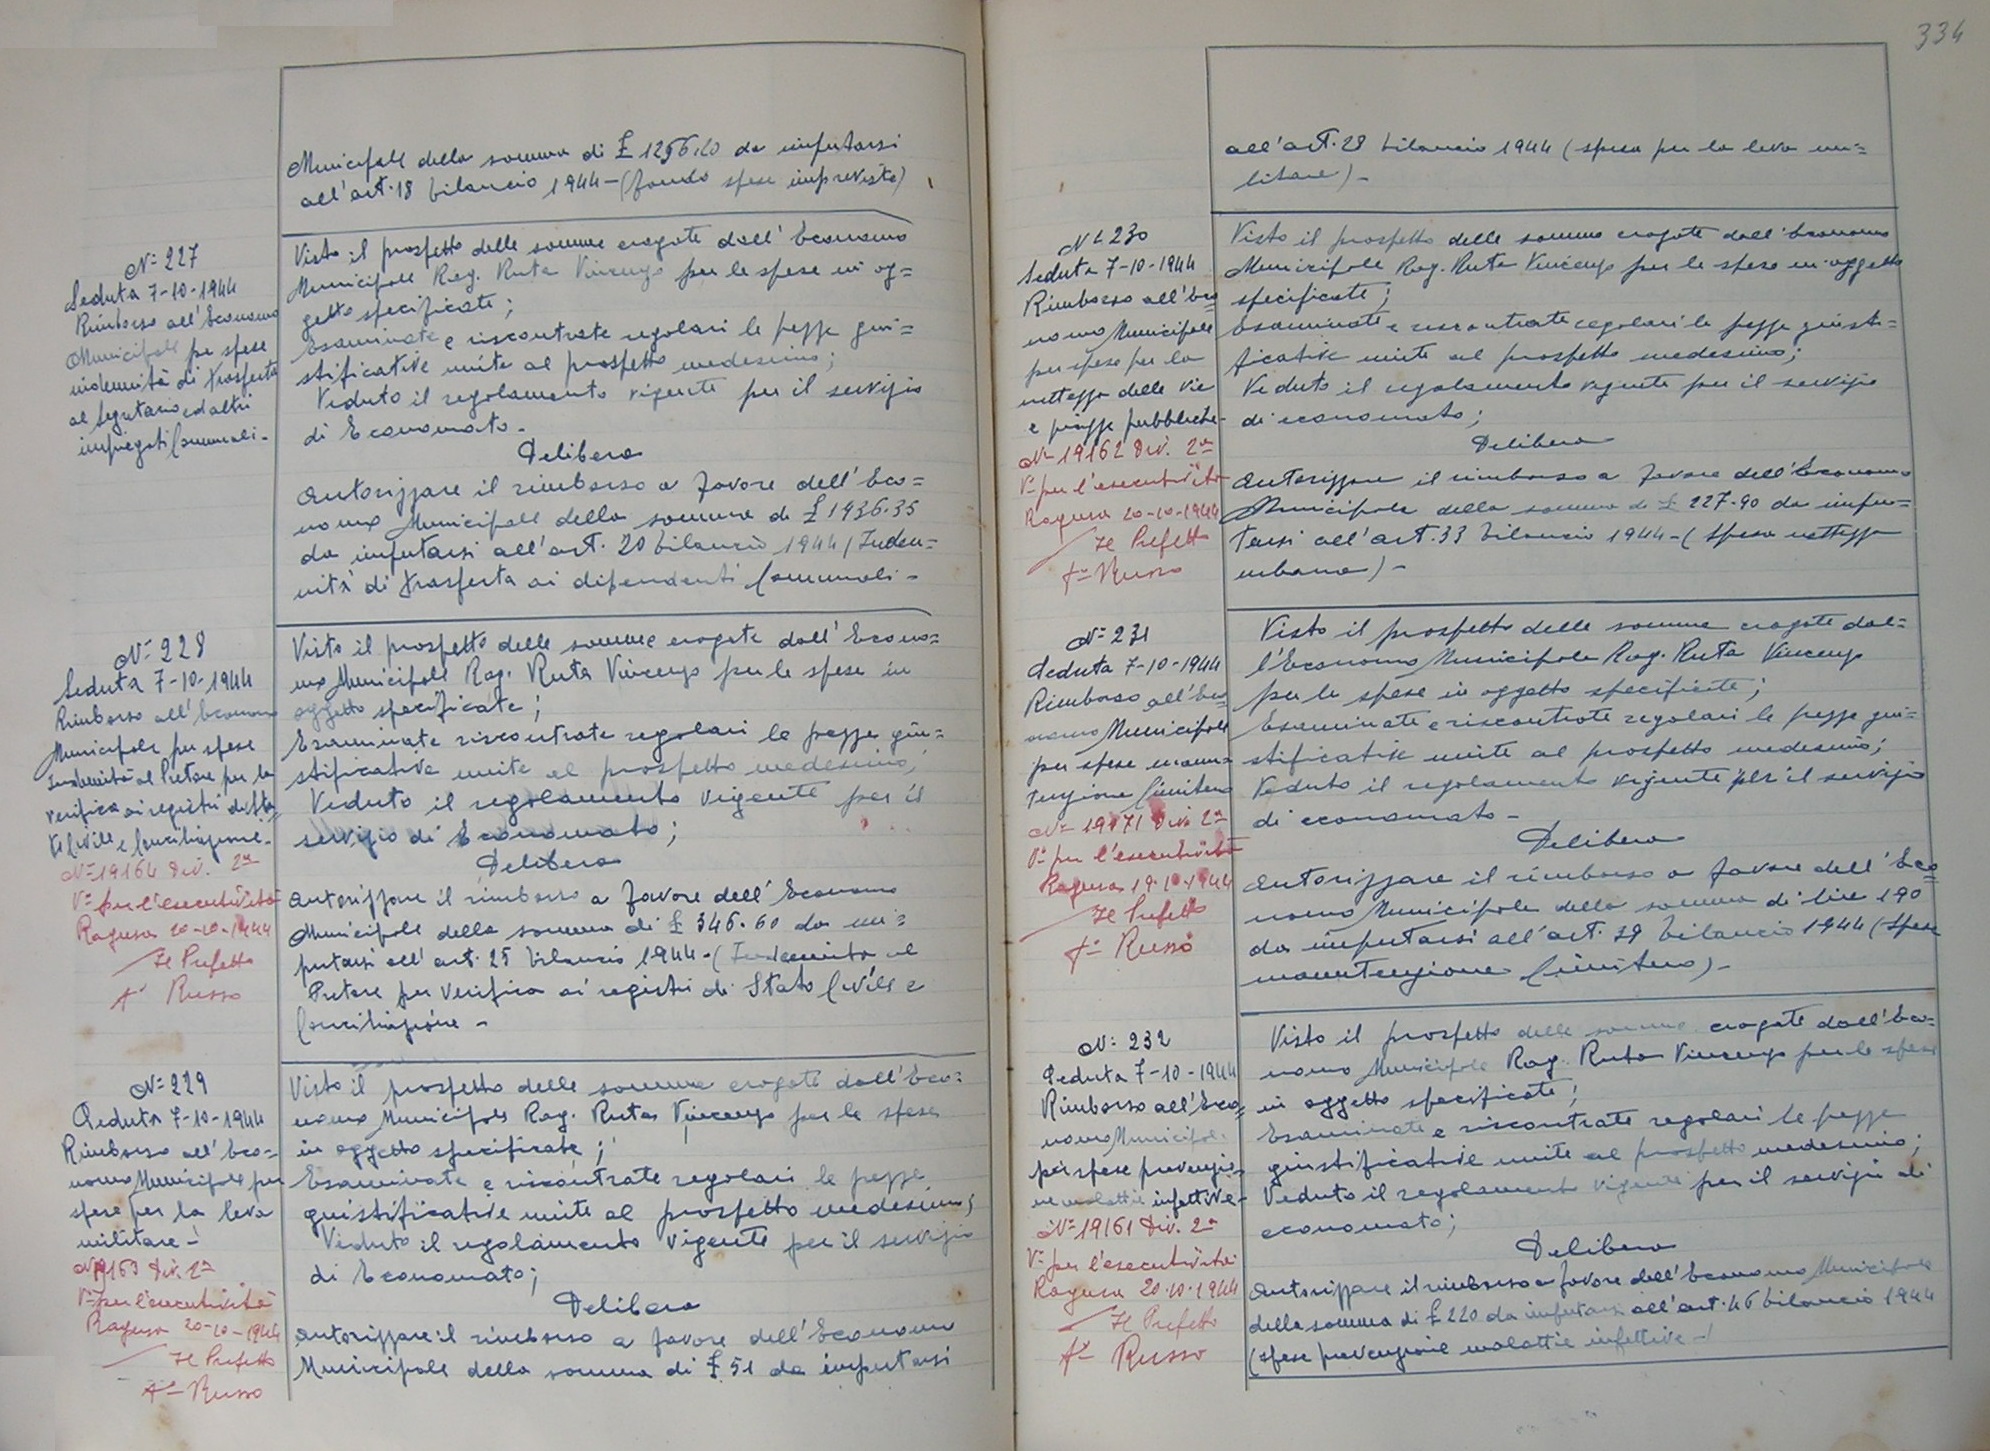 Municipale della somma di £ 1256.20 da imputarsi
all'art. 18 bilancio 1944 - (fondo spese impreviste)
N= 227
Seduta 7-10-1944
Rimborso all'Economo
Municipale per spese
indennità di trasferta
al Segretario ed altri
impiegati Comunali -
Visto il prospetto delle somme erogate dall'Economo
Municipale Rag. Ruta Vincenzo per le spese in og=
getto specificate;
Esaminate e riscontrate regolari le pezze giu=
stificative unite al prospetto medesimo;
Veduto il regolamento vigente per il servizio
di Economato -
Delibera
Autorizzare il rimborso a favore dell'Eco=
nomo Municipale della somma di £ 1936.35
da imputarsi all'art. 20 bilancio 1944 (Inden=
nità di trasferta ai dipendenti Comunali -
N= 228
Seduta 7-10-1944
Rimborso all'Economo
Municipale per spese
Indennità al Pretore per la
verifica ai registri di Sta=
to Civile e Conciliazione -
N= 19164 Div. 2ª
V° per l'esecutività
Ragusa 20-10-1944
Il Prefetto
F° Russo
Visto il prospetto delle somme erogate dall'Econo=
mo Municipale Rag. Ruta Vincenzo per le spese in
oggetto specificate;
Esaminate riscontrate regolari le pezze giu=
stificative unite al prospetto medesimo,
Veduto il regolamento vigente per il
servizio di Economato;
Delibera
Autorizzare il rimborso a favore dell'Economo
Municipale della somma di £ 346.60 da im=
putarsi all'art. 25 bilancio 1944 - (Indennità al
Pretore per verifica ai registri di Stato Civile e
Conciliazione -
N= 229
Seduta 7-10-1944
Rimborso all'Eco=
nomo Municipale per
spese per la leva
militare -
N= 19163 Div. 2ª
V° per l'esecutività
Ragusa 20-10-1944
Il Prefetto
F° Russo
Visto il prospetto delle somme erogate dall'Eco=
nomo Municipale Rag. Ruta Vincenzo per le spese
in oggetto specificate;
Esaminate e riscontrate regolari le pezze
giustificative unite al prospetto medesimo;
Veduto il regolamento vigente per il servizio
di Economato;
Delibera
Autorizzare il rimborso a favore dell'Economo
Municipale della somma di £ 51 da imputarsi
334
all'art. 28 bilancio 1944 (spesa per la leva mi=
litare) -
N= 230
Seduta 7-10-1944
Rimborso all'Eco=
nomo Municipale
per spese per la
nettezza delle vie
e piazze pubbliche -
N= 19162 Div. 2ª
V° per l'esecutività
Ragusa 20-10-1944
Il Prefetto
F° Russo
Visto il prospetto delle somme erogate dall'Economo
Municipale Rag. Ruta Vincenzo per le spese in oggetto
specificate;
Esaminate e riscontrate regolari le pezze giusti=
ficative unite al prospetto medesimo;
Veduto il regolamento vigente per il servizio
di economato;
Delibera
Autorizzare il rimborso a favore dell'Economo
Municipale della somma di £ 227.90 da impu=
tarsi all'art. 33 bilancio 1944 - (Spesa nettezza
urbana) -
N= 231
Seduta 7-10-1944
Rimborso all'Eco=
nomo Municipale
per spese manu=
tenzione Cimitero
N= 19171 Div. 2ª
V° per l'esecutività
Ragusa 19.10.1944
Il Prefetto
F° Russo
Visto il prospetto delle somme erogate dal=
l'Economo Municipale Rag. Ruta Vincenzo
per le spese in oggetto specificate;
Esaminate e riscontrate regolari le pezze giu=
stificative unite al prospetto medesimo;
Veduto il regolamento vigente per il servizio
di economato -
Delibera
Autorizzare il rimborso a favore dell'Eco=
nomo Municipale della somma di lire 190
da imputarsi all'art. 39 bilancio 1944 (Spese
manutenzione Cimitero) -
N= 232
Seduta 7-10-1944
Rimborso all'Eco=
nomo Municipale
per spese prevenzio=
ne malattie infettive -
N= 19161 Div. 2ª
V° per l'esecutività
Ragusa 20.10.1944
Il Prefetto
F° Russo
Visto il prospetto delle somme erogate dall'Eco=
nomo Municipale Rag. Ruta Vincenzo per le spese
in oggetto specificate;
Esaminate e riscontrate regolari le pezze
giustificative unite al prospetto medesimo;
Veduto il regolamento vigente per il servizio di
economato;
Delibera
Autorizzare il rimborso a favore dell'Economo Municipale
della somma di £ 220 da imputarsi all'art. 46 bilancio 1944
(spese prevenzione malattie infettive -)